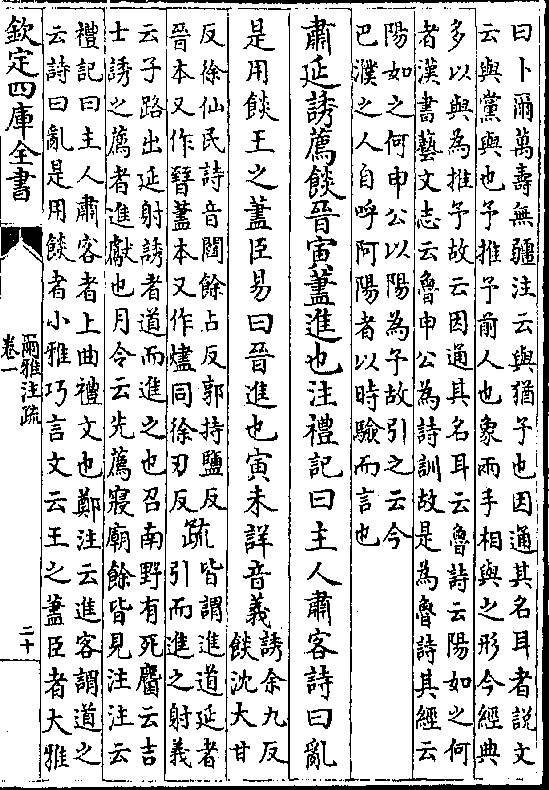 曰卜爾萬壽無疆注云與猶予也因通其名耳者說文
云與黨與也予推予前人也象兩手相與之形今經典
多以與為推予故云因通其名耳云魯詩云陽如之何
者漢書藝文志云魯申公為詩訓故是為魯詩其經云
陽如之何申公以陽為予故引之云今
巴濮之人自呼阿陽者以時驗而言也
肅延誘薦餤晉寅藎進也注禮記曰主人肅客詩曰亂
是用餤王之藎臣易曰晉進也寅未詳音義誘余九反
餤沈大甘
反徐仙民詩音閻餘占反郭持鹽反
晉本又作㬜藎本又作燼同徐刃反疏皆謂進道延者
引而進之射義
云子路出延射誘者道而進之也召南野有死麕云吉
士誘之薦者進獻也月令云先薦寢廟餘皆見注注云
禮記曰主人肅客者上曲禮文也鄭注云進客謂道之
云詩曰亂是用餤者小雅巧言文云王之藎臣者大雅
欽定四庫全書
爾雅注疏
卷一
二十